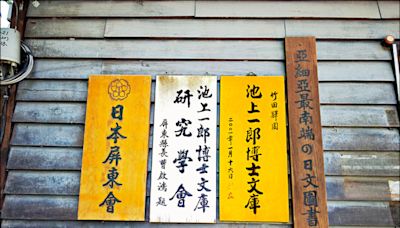 亞細亞最南端の日文圖書
竹田驛園
池上一郎博士文庫
二〇〇一年一月十六日
池上一郎博士文庫
研究學會
屏東縣長曹啟鴻題
日本屏東會